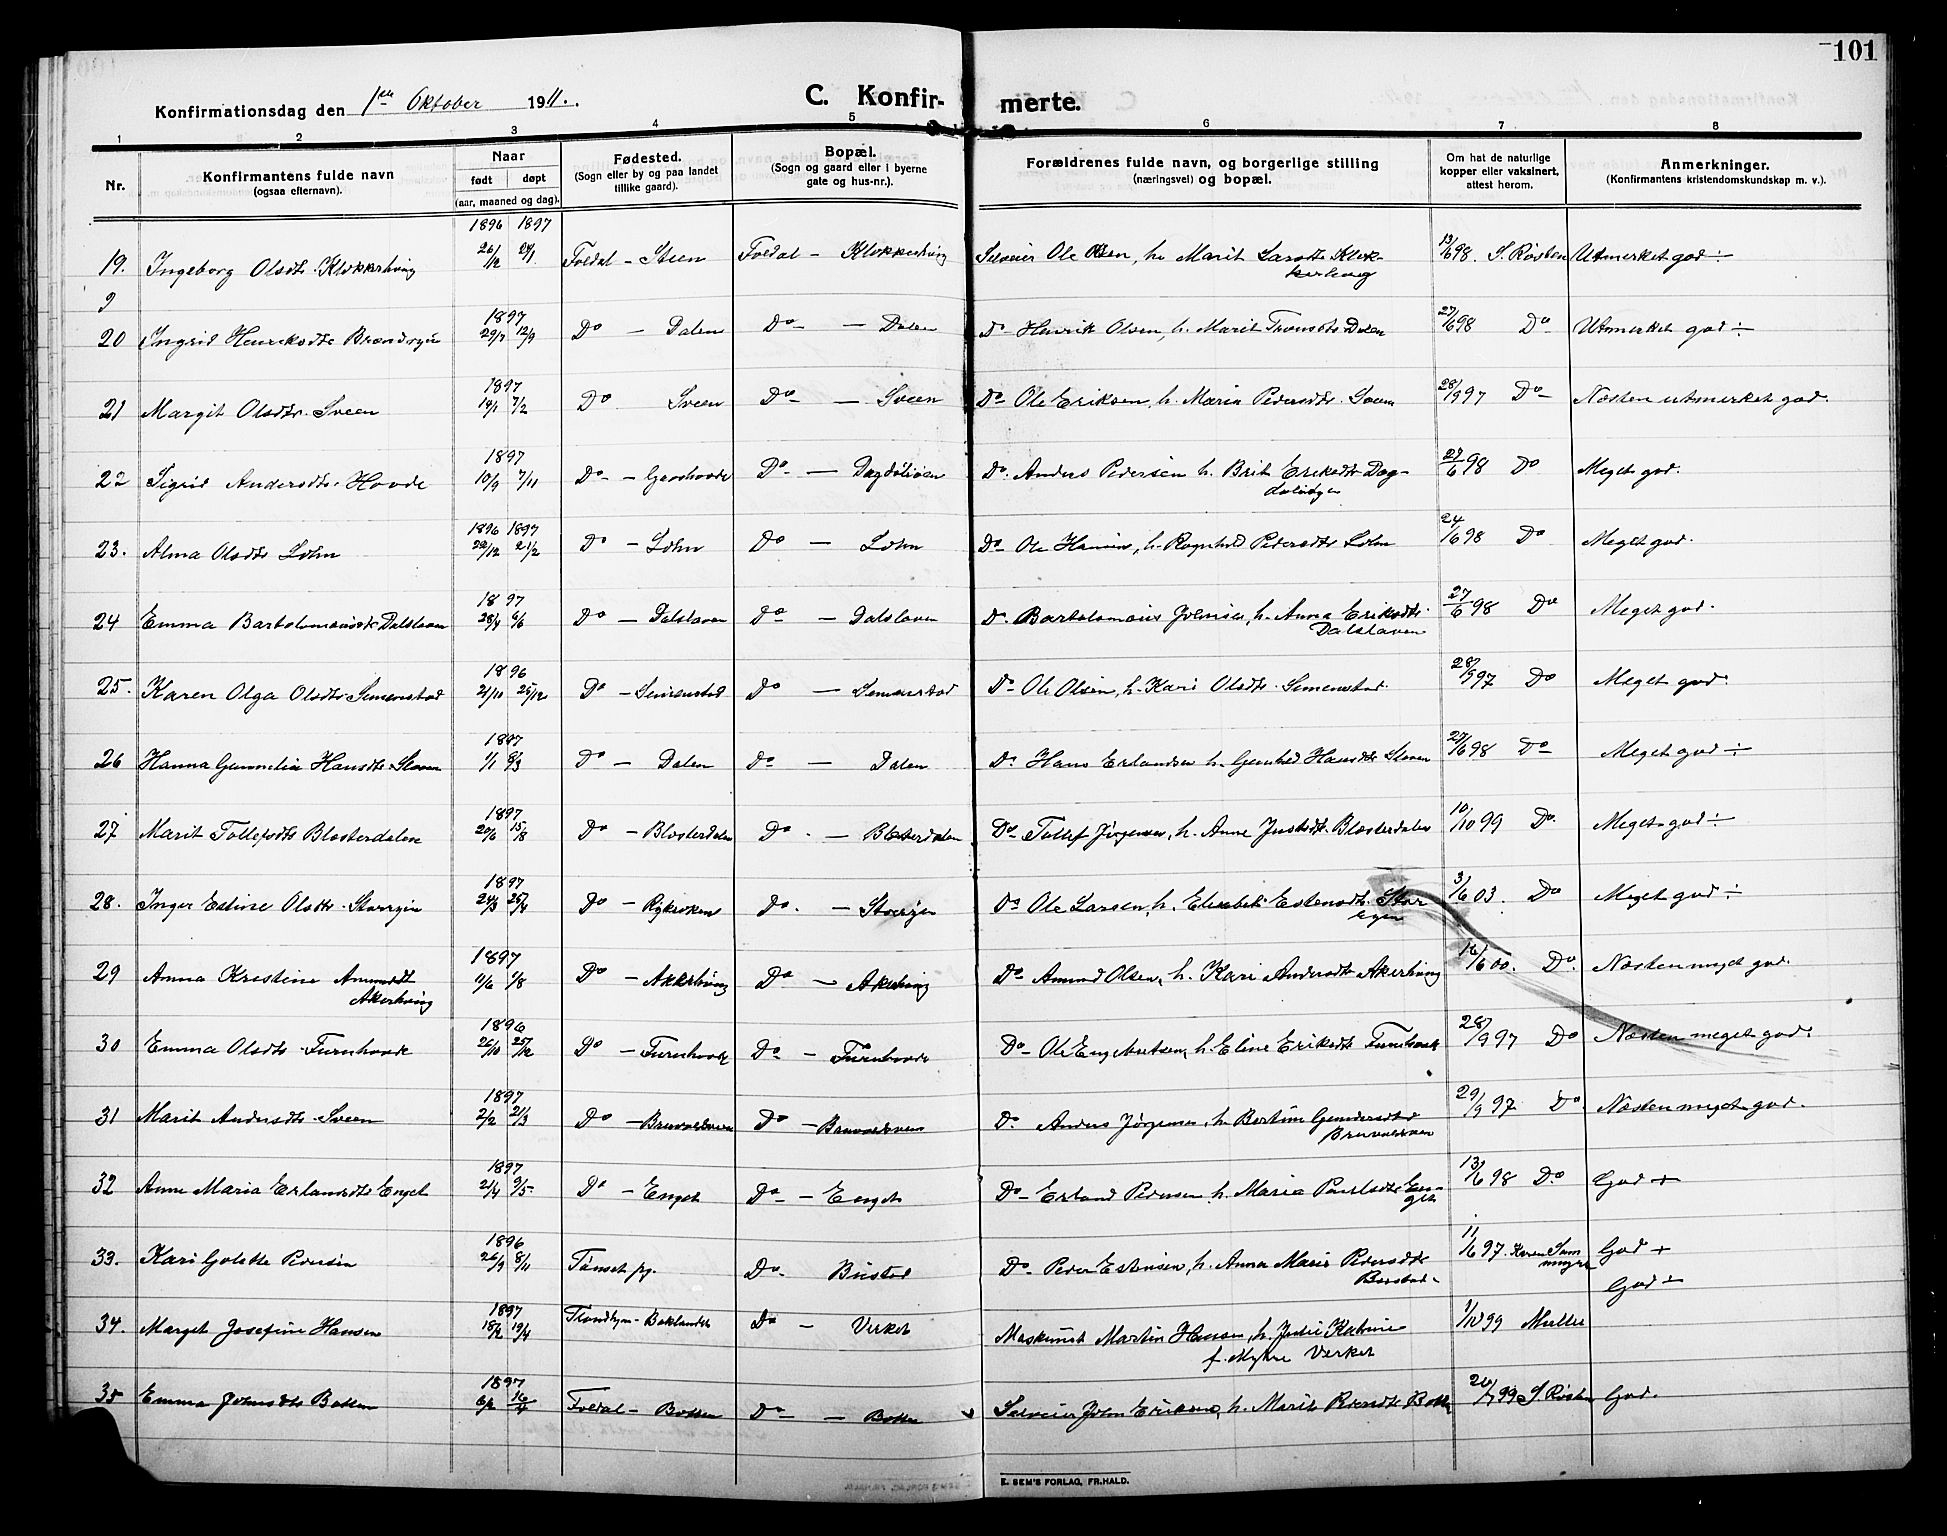 101
Konfirmationsdag den 1ste Oktober 1911. C. Konfirmerte.
1 2 3 4 5 6 7 8
Nr. Konfirmantens fulde navn (ogsaa efternavn). Naar født døpt (aar, maaned og dag). Fødested. (Sogn eller by og paa landet tillike gaard). Bopæl. (Sogn og gaard eller i byerne gate og hus-nr.). Forældrenes fulde navn, og borgerlige stilling (næringsvei) og bopæl. Om hat de naturlige kopper eller vaksinert, attest herom. Anmerkninger. (Konfirmantens kristendomskundskap m. v.).
1896 1897
19. Ingeborg Olsdtr. Klokkerhaug 26/12 24/1 Foldal - Steen Foldal - Klokkerhaug Selveier Ole Olsen, h. Marit Larsdtr. Klokkerhaug 13/6 98. S. Røsten Utmerket god ÷
9
1897
20 Ingrid Henriksdtr 29/7 12/9 Do - Dalen Do - Dalen Do Henrik Olsen, h. Marit Dalen 27/6 98 Do Utmerket god ÷
1897
21 Margit Olsdtr. Sveen 14/1 7/2 Do Sveen Do - Sveen Do Ole Eriksen, h. Maria Pedersdtr. Sveen 28/9 97 Do Næsten utmerket god.
1897
22 Sigrid Andersdtr. Hovde 10/9 7/11 Do - Do - Do Anders Pedersen h. Brit Eriksdtr. 27/6 98 Do Meget god.
1896 1897
23. Alma Olsdtr Lohn 29/12 21/2 Do - Lohn Do - Lohn Do Ole Hansen, h. Ragnhild Pedersdtr Lohn 24/6 98 Do Meget god.
1897
24 Emma Bartolomæusdtr. Dalsløen 28/4 6/6 Do - Dalsløen Do - Dalsløen Do Bartolomæus Joensen, h. Anna Eriksdtr. Dalsløen 27/6 98 Do Meget god.
1896
25. Karen Olga Olsdtr. Simenstad 21/10 25/12 Do - Simenstad Do - Simenstad Do Ole Olsen, h. Kari Olsdtr. Simenstad. 28/9 97 Do Meget god.
1897
26 Hanna Gunnelie Hansdtr. Sløen 1/1 Do - Dalen Do - Dalen Do Hans Erlandsen h. Gunhild Hansdtr Sløen 27/6 98 Do Meget god ÷
1897
27 Marit Tollefsdtr Blæsterdalen 20/6 15/8 Do - Blæsterdalen Do - Blæsterdalen Do Tollef Jørgensen, h. Anne Blæsterdalen 10/10 99 Do Meget god ÷
1897
28. Inger Estine Olsdtr. Storøyen 24/3 25/4 Do Do - Storøyen Do Ole Larsen, h. Elisabet Estensdtr. Storøyen 3/6 03. Do Meget god ÷
1897
29 Anna Kristine Amundsdtr Akerhaug 11/6 1/8 Do - Akerhaug Do - Akerhaug Do Amund Olsen, h. Kari Andersdtr Akerhaug 16/6 00. Do Næsten meget god.
1896
30 Emma Olsdtr. Furuhovde 26/10 25/12 Do - Furuhovde Do - Furuhovde Do Ole Engebretsen, h. Eline Eriksdtr Furuhovde 28/9 97 Do Næsten meget god.
1897
31 Marit Andersdtr. Sveen 2/2 21/3 Do Do Do Anders Jørgensen, h. Bertine Gundersdtr 29/9 97 Do Næsten meget god.
1897
32 Anne Maria Erlandsdtr Enget 21/4 9/5 Do - Enget Do - Enget Do Erland Pedersen, h. Maria Paulsdtr Enget 13/6 98 Do God +
1896
33. Kari Golette Pedersen 26/9 8/11 Tønset pg. Do Bustad Do Peder Estensen, h. Anna Marie Pedersdtr 11/6 97. Karen God +
God ÷
1897
34. Marget Josefine Hansen 18/2 19/4 Trondhjem - Baklandet Do - Verket Maskinist Martin Hansen, h. Julie Katrine f. Myhre Verket 1/10 99 Müller
1897
35 Emma Johnsdtr Botten 6/2 16/4 Foldal - Botten Do - Botten Selveier John Eriksen, h. Marit Botten 26/7 99 S. Røsten God.
E. SEM'S FORLAG, FR.HALD.